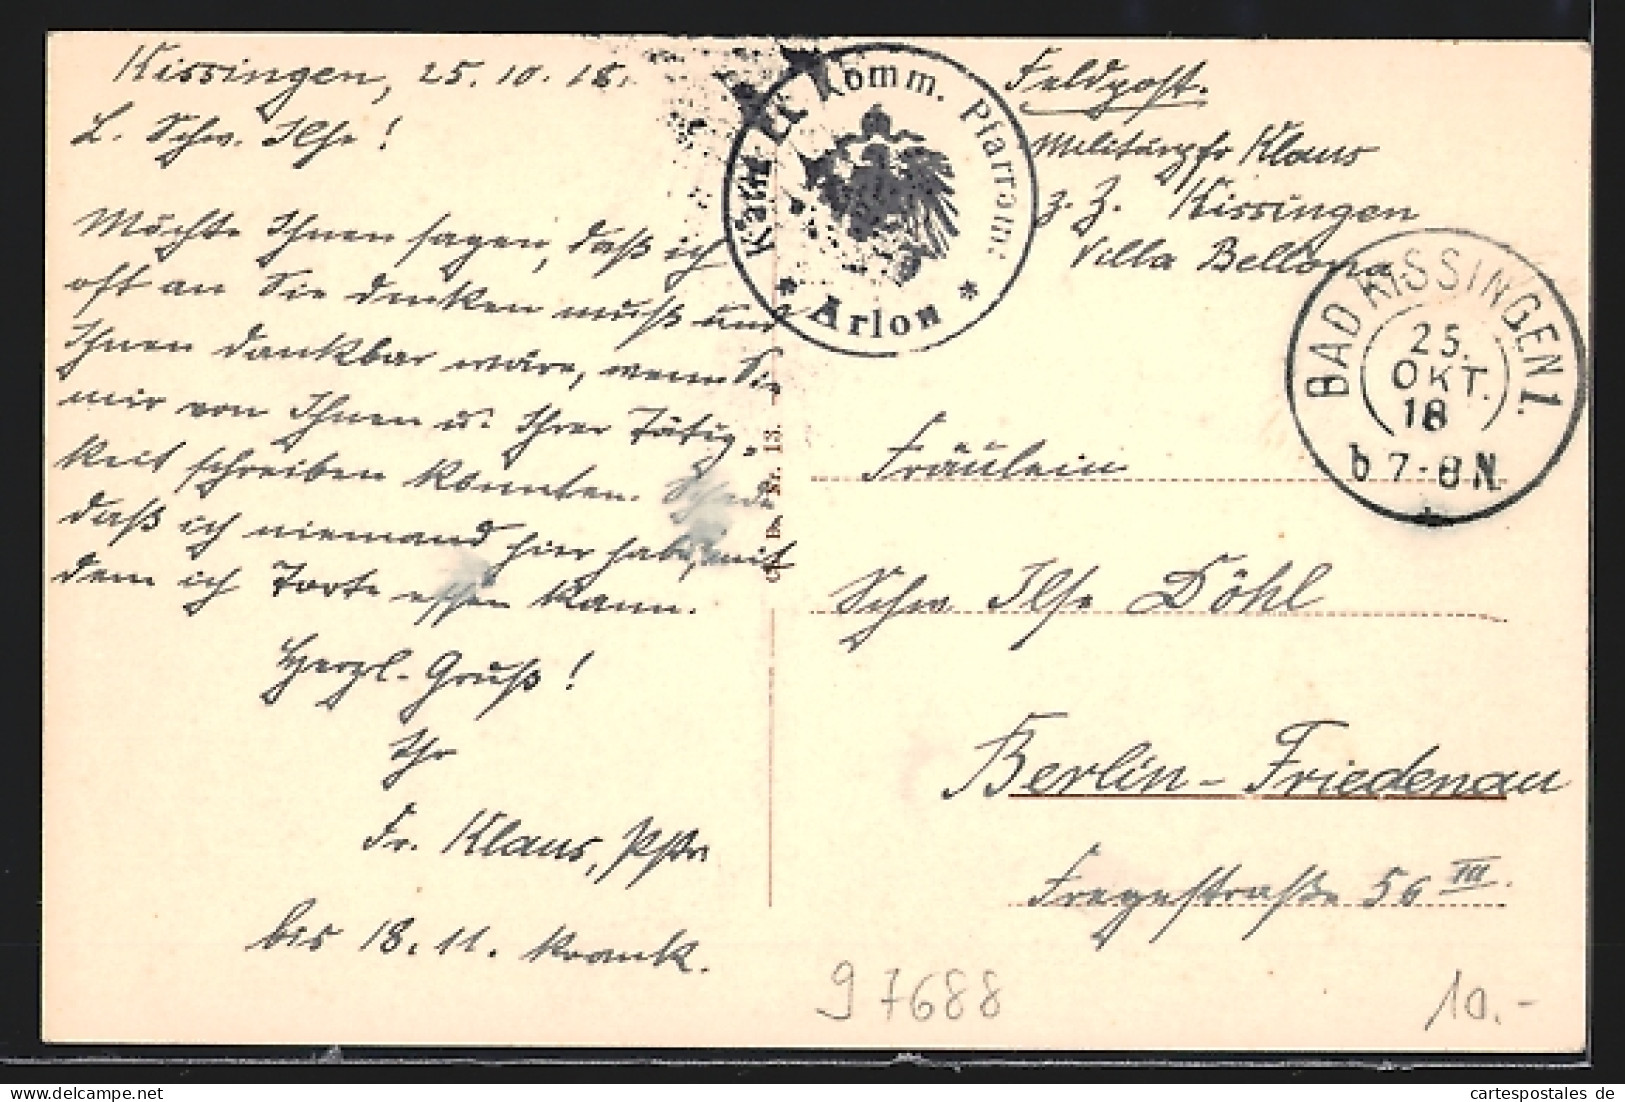 Kissingen, 25.10.18.
L. Schw. Ilse!
Möchte Ihnen sagen, daß ich
oft an Sie denken muß und
Ihnen dankbar wäre, wenn Sie
mir von Ihnen u. Ihrer Tätig-
keit schreiben könnten. Schade
daß ich niemand hier habe, mit
dem ich Torte essen kann.
Herzl. Gruß!
Ihr
Fr. Klaus, Pfr
bis 18.11. krank.
Kath. Komm. Pfarramt
* Arlon *
Nr. 13.
Feldpost.
Militärpfr Klaus
z. Z. Kissingen
Villa Bellona
BAD KISSINGEN 1.
25.
OKT.
18
b 7-8 N.
Fräulein
Schw Ilse Döhl
Berlin-Friedenau
Fregestraße 56 III.
97688
10.-
cartespostales de